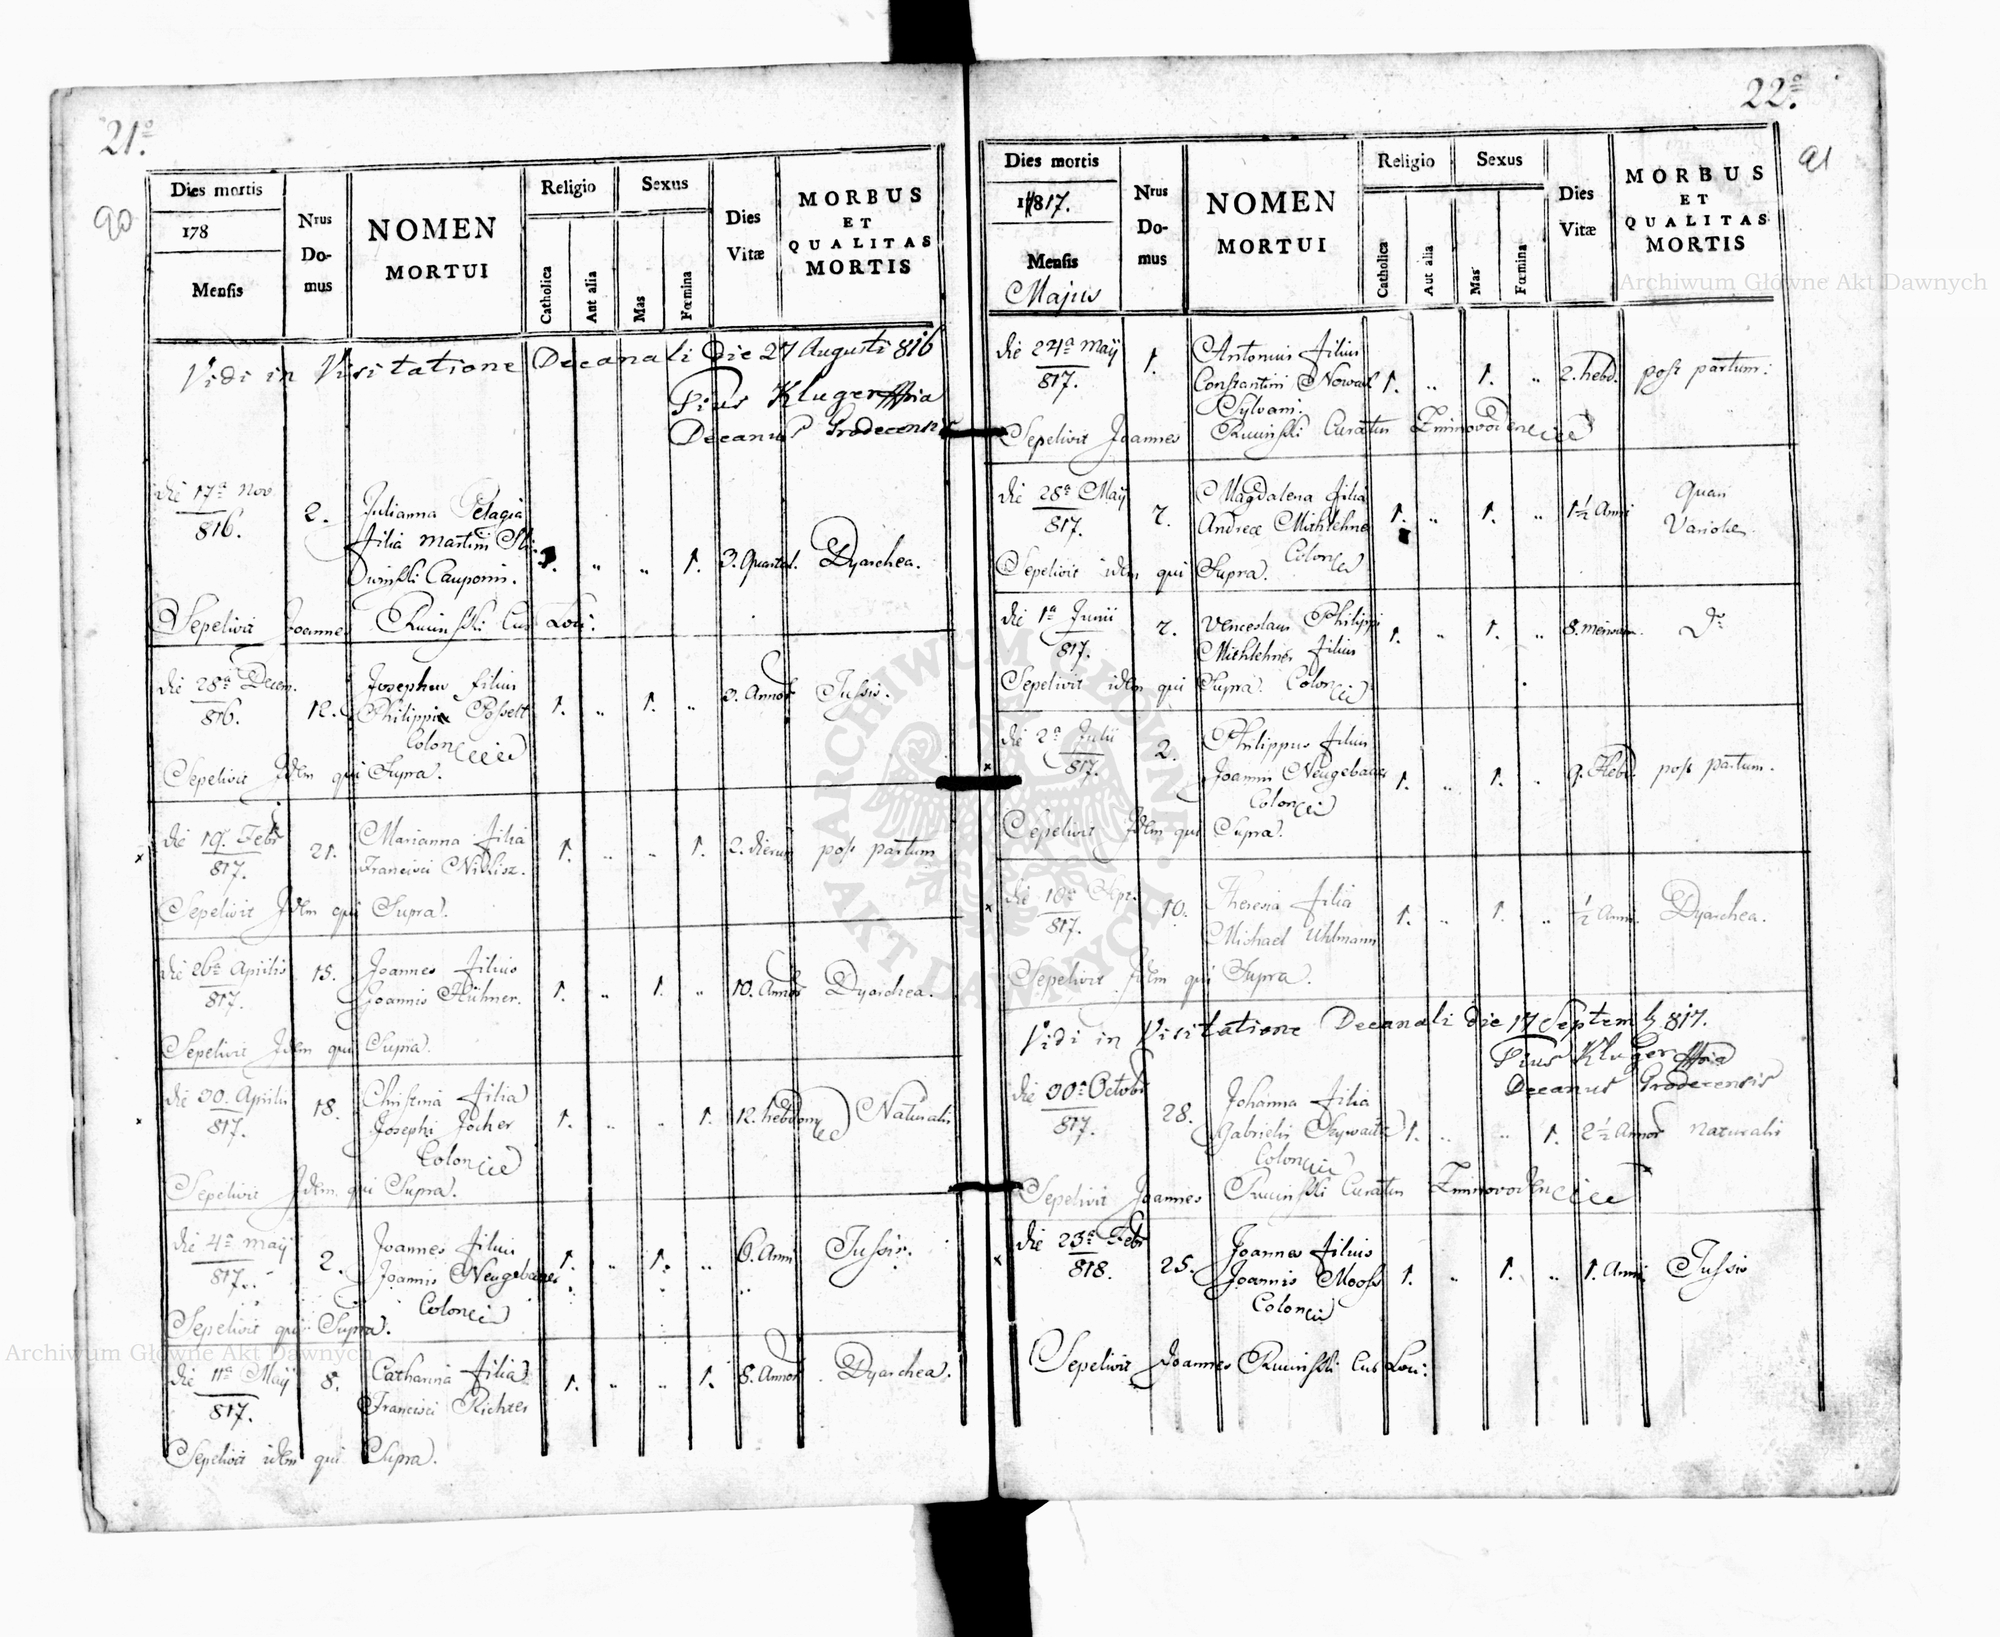 21º.
90
Dies mortis
178
Mensis
Nrus Domus
NOMEN MORTUI
Religio
Catholica
Aut alia
Sexus
Mas
Fœmina
Dies Vitæ
MORBUS ET QUALITAS MORTIS
Vidi in Visitatione Decanali die 27 Augusti 816
Pius Kluger mpria
Decanus Grodecensis
die 17ª Nov. 816. 2. Julianna Pelagia
filia Martini
Cauponis. 1. " " 1. 3. Quartal. Dyarhea.
Sepelivit Joannes Cur Loci.
die 28ª Decem. 816. 12. Josephus filius
Philippi Posselt
Coloniae 1. " 1. " 3. Annor Tussis.
Sepelivit Idem qui Supra.
die 19ª Febr 817. 21. Marianna filia
Francisci 1. " " 1. 2. dierum post partum
Sepelivit Idem qui Supra.
die 26ª Aprilis 817. 15. Joannes filius
Joannis Hühner. 1. " 1. " 10. Annor Dyarhea.
Sepelivit Idem qui Supra.
die 30. Aprilis 817. 18. Christina filia
Josephi Jocher
Coloniae 1. " " 1. 12. hebdom Naturalis
Sepelivit Idem qui Supra.
die 4ª May 817. 2. Joannes filius
Joannis Neugebauer
Coloniae 1. " 1. " 6. Anni Tussis.
Sepelivit qui Supra.
die 11ª May 817. 8. Catharina filia
Francisci Richter 1. " " 1. 8. Annor Dyarhea.
Sepelivit idem qui Supra.
22º.
91
Dies mortis
1817.
Mensis
Majus
Nrus Domus
NOMEN MORTUI
Religio
Catholica
Aut alia
Sexus
Mas
Fœmina
Dies Vitæ
MORBUS ET QUALITAS MORTIS
die 24ª May 817. 1. Antonius filius
Constantini Nowak
Sylvani. 1. " 1. " 2. hebd. post partum.
Sepelivit Joannes Curatus
die 28ª May 817. 7. Magdalena filia
Andreæ
Coloniae 1. " 1. " 1½ Anni Quasi Variolae.
Sepelivit idem qui Supra.
die 1ª Junii 817. 7. Venceslaus Philippi
filius 1. " 1. " 8. mensium. Dº
Sepelivit idem qui Supra. Coloniae
die 2ª Julii 817. 2. Philippus filius
Joannis Neugebauer
Coloniae 1. " 1. " 9. Hebd. post partum.
Sepelivit Idem qui Supra.
die 10ª Sept. 817. 10. Theresia filia
Michael Uhlmann 1. " 1. " ½ Anni Dyarhea.
Sepelivit Idem qui Supra.
Vidi in Visitatione Decanali die 17 Septemb 817.
Pius Kluger mpria
Decanus Grodecensis
die 30ª Octobr 817. 28. Johanna filia
Gabrielis
Coloniae 1. " " 1. 2½ Annor naturalis
Sepelivit Joannes Curatus
die 23ª Febr 818. 25. Joannes filius
Joannis Mooss
Coloniae 1. " 1. " 1. Anni Tussis
Sepelivit Joannes Cur Loci:
Archiwum Główne Akt Dawnych
Archiwum Główne Akt Dawnych
ARCHIWUM GŁÓWNE AKT DAWNYCH